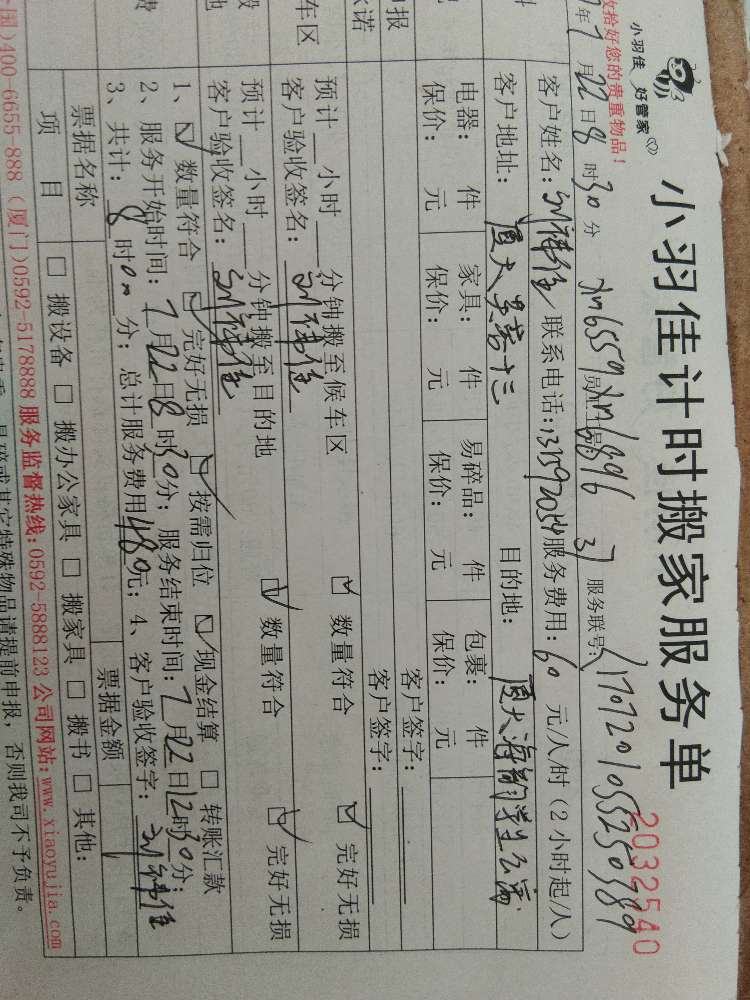 小羽佳 好管家
小羽佳计时搬家服务单
2032540
收拾好您的贵重物品！
年7月22日8时30分 服务联号:
客户姓名: 联系电话: 服务费用: 60 元/人/时（2小时起/人）
客户地址: 目的地:
电器: 件 家具: 件 易碎品: 件 包裹: 件
保价: 元 保价: 元 保价: 元 保价: 元
客户签字:
客户签字:
车区 预计 小时 分钟搬至候车区 数量符合 完好无损
客户验收签名:
预计 小时 分钟搬至目的地 数量符合 完好无损
客户验收签名:
1、 数量符合 完好无损 按需归位 现金结算 转账汇款
2、服务开始时间: 7月22日8时30分; 服务结束时间: 7月22日12时30分;
3、共计: 8时00分; 总计服务费用480元; 4、客户验收签字:
票据名称 票据金额
项目 搬设备 搬办公家具 搬家具 搬书 其他:
国)400-6655-888（厦门)0592-5178888 服务监督热线:0592-5888123 公司网站:www.xiaoyujia.com
易碎或其它特殊物品请提前申报，否则我司不予负责。